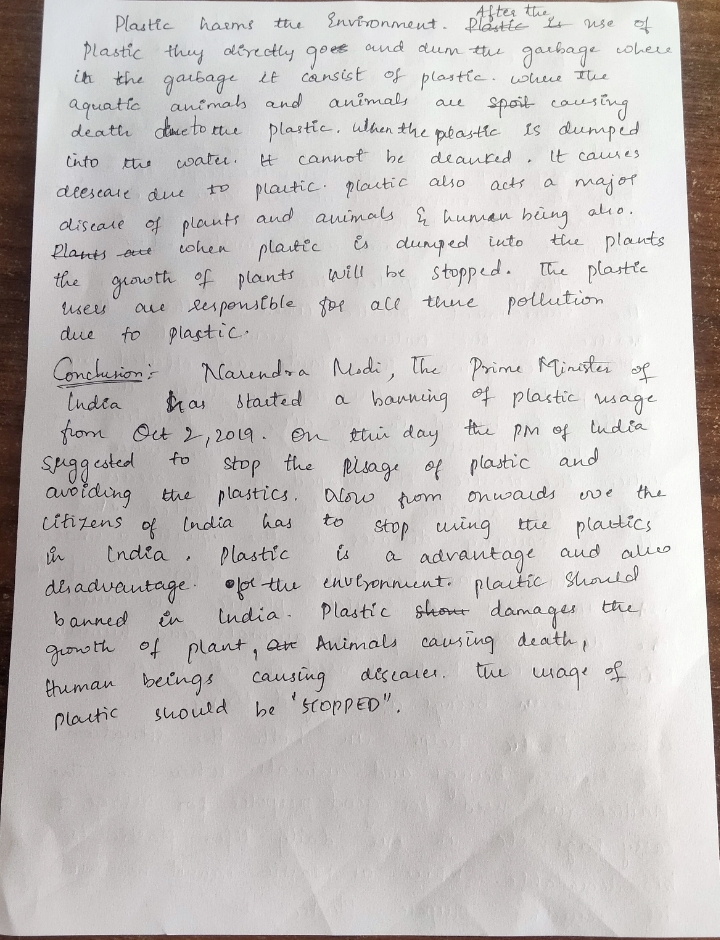 Plastic harms the Environment. After the use of
Plastic they directly goes and dum the garbage where
in the garbage it consist of plastic. where the
aquatic animals and animals are causing
death due to the plastic. When the plastic is dumped
into the water. It cannot be . It causes
deesease due to plastic. plastic also acts a major
disease of plants and animals & human being also.
when plastic is dumped into the plants
the growth of plants will be stopped. The plastic
users are responsible for all these pollution
due to plastic.
Conclusion:- Narendra Modi, The Prime Minister of
India has started a banning of plastic usage
from Oct 2, 2019. On this day the PM of India
suggested to stop the usage of plastic and
avoiding the plastics. Now from onwards we the
citizens of India has to stop using the plastics
in India. Plastic is a advantage and also
disadvantage. of the environment. plastic should
banned in India. Plastic damages the
growth of plant, Animals causing death,
Human beings causing diseases. The usage of
Plastic should be "STOPPED".